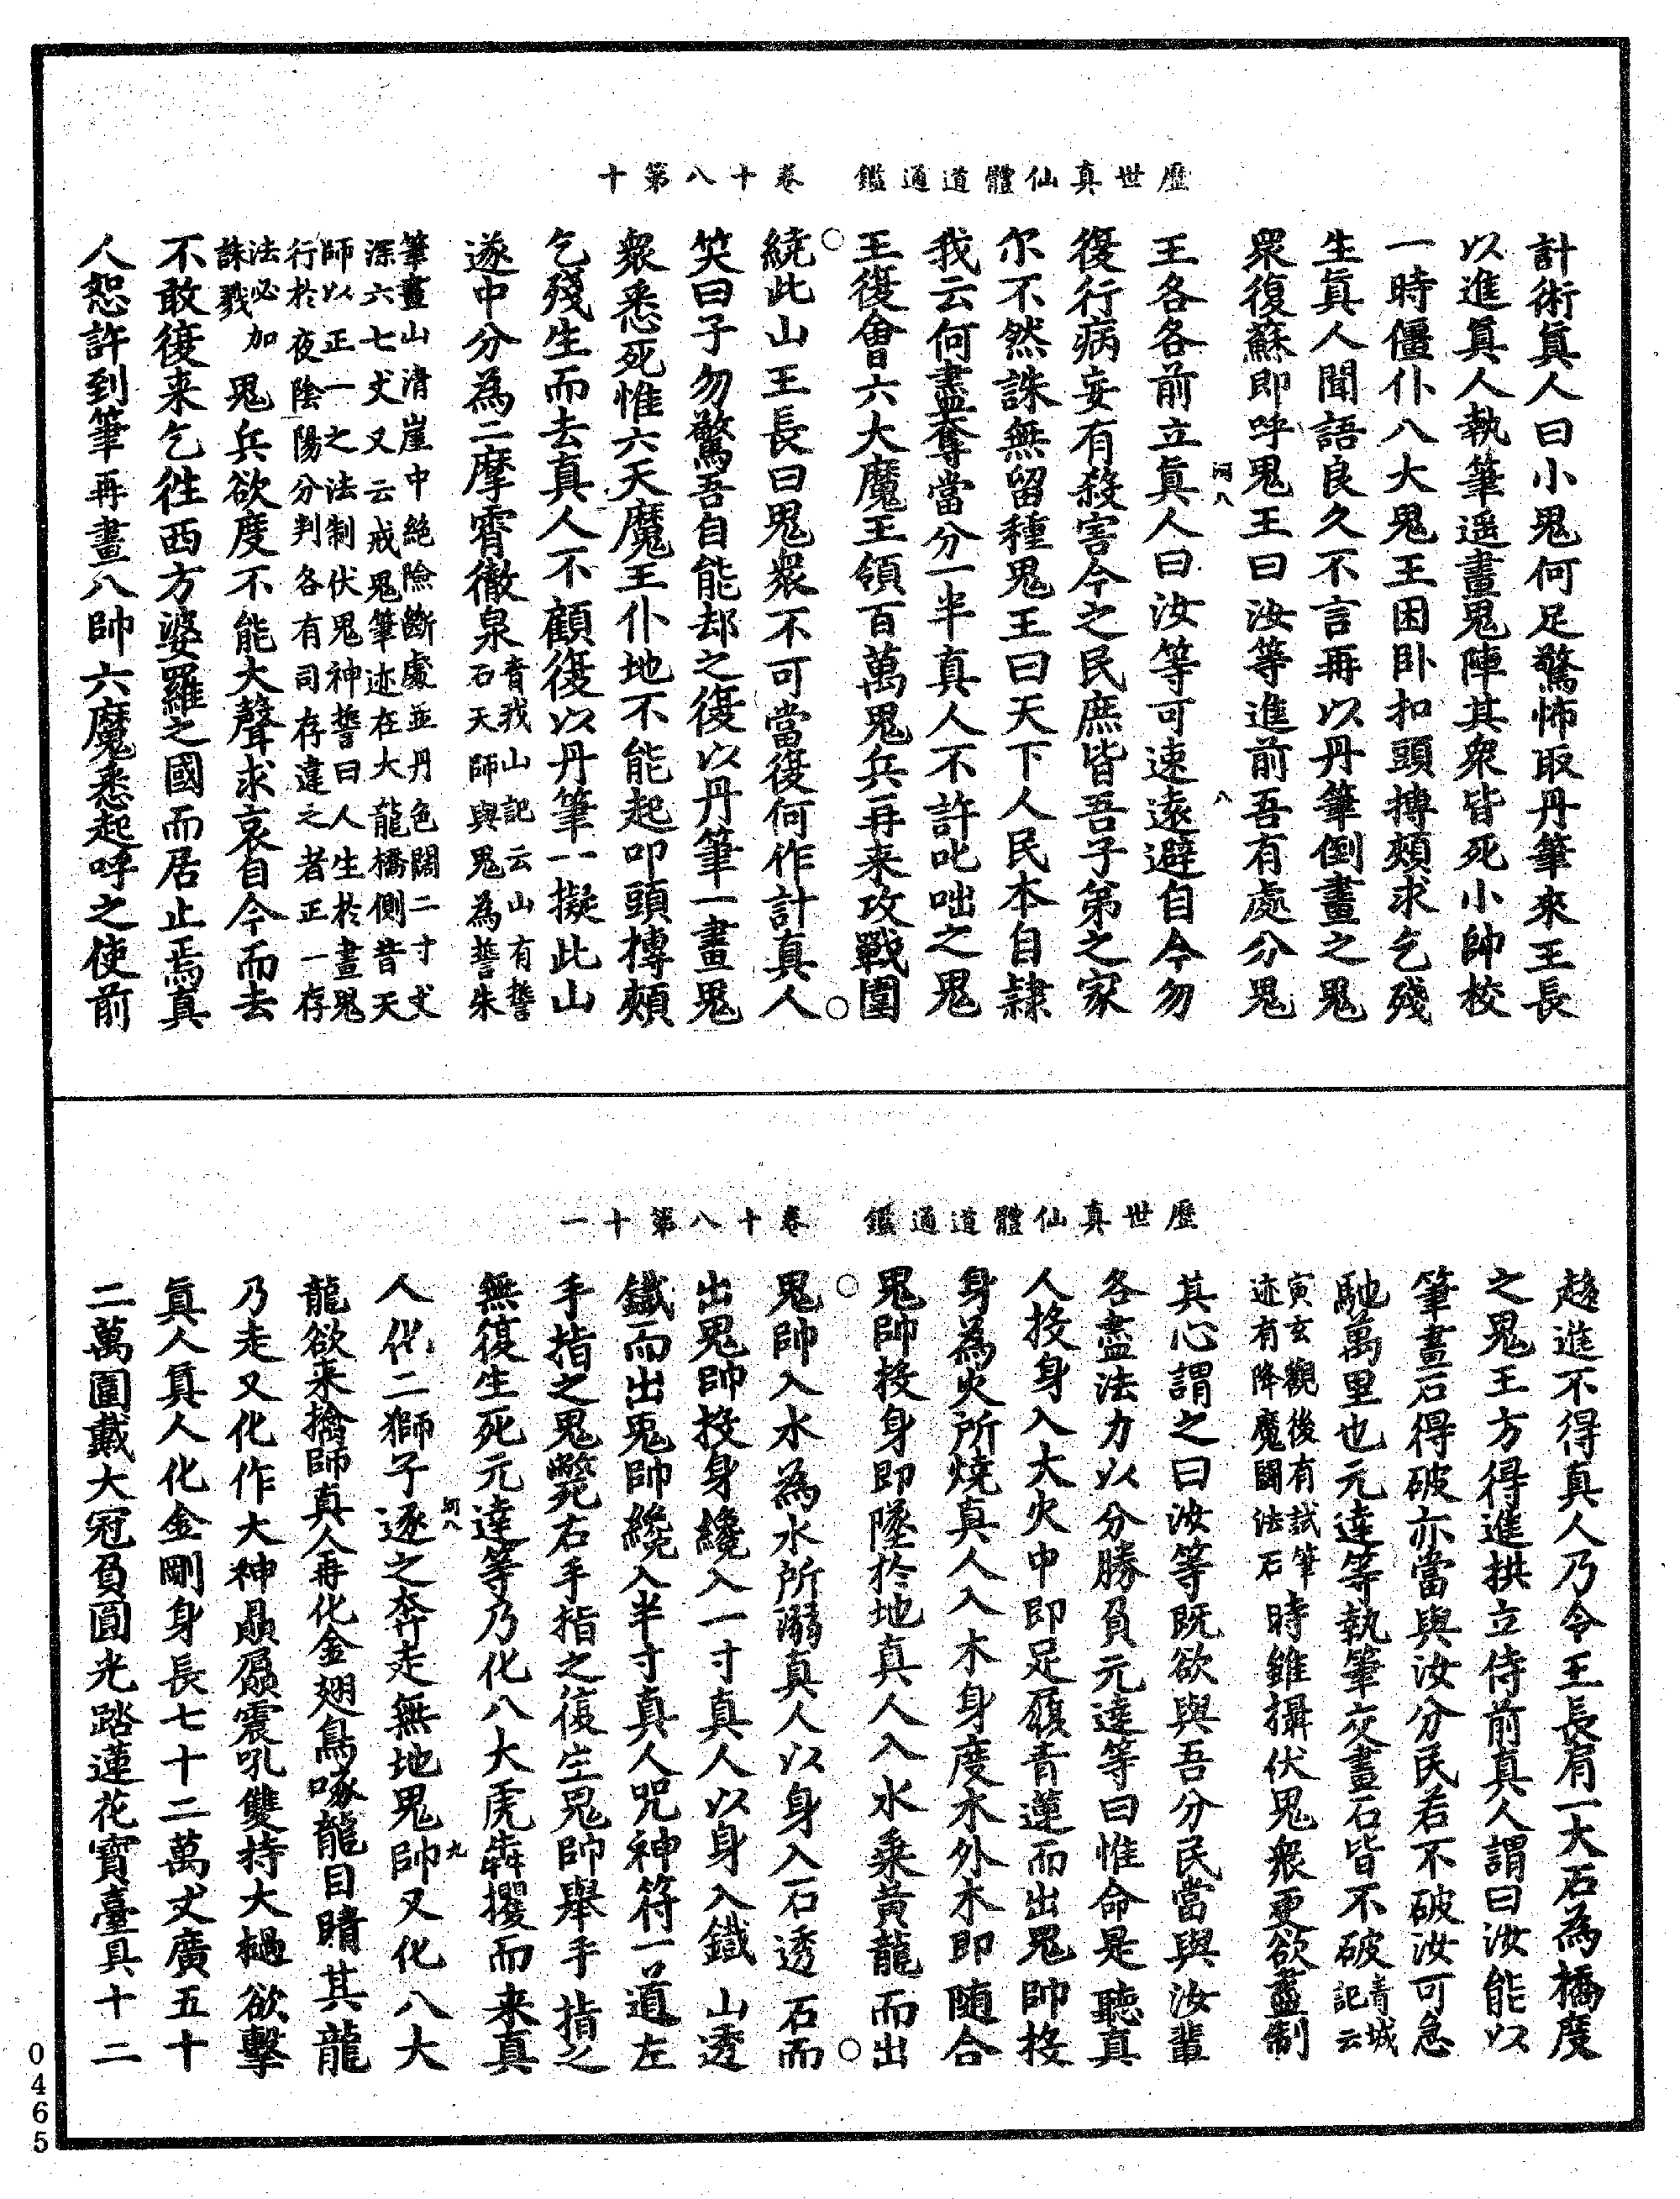 歷世真仙體道通鑑　卷十八第十
計術真人曰小鬼何足驚怖取丹筆來王長
以進真人執筆遥畫鬼陣其衆皆死小帥校
一時僵仆八大鬼王困卧扣頭搏頰求乞殘
生真人聞語良久不言再以丹筆倒畫之鬼
衆復蘇即呼鬼王曰汝等進前吾有處分鬼
河八　八
王各各前立真人曰汝等可速遠避自今勿
復行病妄有殺害今之民庶皆吾子第之家
尔不然誅無留種鬼王曰天下人民本自隸
我云何盡奪當分一半真人不許叱咄之鬼
王復會六大魔王領百萬鬼兵再来攻戰圍
繞此山王長曰鬼衆不可當復何作計真人
笑曰子勿驚吾自能却之復以丹筆一畫鬼
衆悉死惟六天魔王仆地不能起叩頭搏頰
乞殘生而去真人不顧復以丹筆一擬此山
遂中分為二摩霄徹泉青城山記云山有誓石天師與鬼為誓朱
筆畫山清崖中絶險斷處並丹色闊二寸丈
深六七丈又云戒鬼筆迹在大龍橋側昔天
師以正一之法制伏鬼神誓曰人生於晝鬼
行於夜陰陽分判各有司存違之者正一存
法必加誅戮鬼兵欲度不能大聲求哀自今而去
不敢復来乞徃西方婆羅之國而居止焉真
人恕許到筆再畫八帥六魔悉起呼之使前
歷世真仙體道通鑑　卷十八第十一
趍進不得真人乃令王長肩一大石為橋度
之鬼王方得進拱立侍前真人謂曰汝能以
筆畫石得破亦當與汝分民若不破汝可急
馳萬里也元達等執筆交畫石皆不破青城記云
寅玄觀後有試筆迹有降魔鬭法石時雖攝伏鬼衆更欲盡制
其心謂之曰汝等既欲與吾分民當與汝輩
各盡法力以分勝負元達等曰惟命是聽真
人投身入大火中即足履青蓮而出鬼帥投
身為火所燒真人入木身度木外木即随合
鬼帥投身即墜於地真人入水乗黄龍而出
鬼帥入水為水所溺真人以身入石透石而
出鬼帥投身纔入一寸真人以身入鐵山透
鐵而出鬼帥纔入半寸真人咒神符一道左
手指之鬼斃右手指之復生鬼帥舉手指之
無復生死元達等乃化八大虎犇攫而来真
河八　九
人化二獅子逐之奔走無地鬼帥又化八大
龍欲来擒師真人再化金翅鳥啄龍目睛其龍
乃走又化作大神贔屭震吼雙持大檛欲擊
真人真人化金剛身長七十二萬丈廣五十
二萬圍戴大冠負圓光踏蓮花寶臺具十二
0465